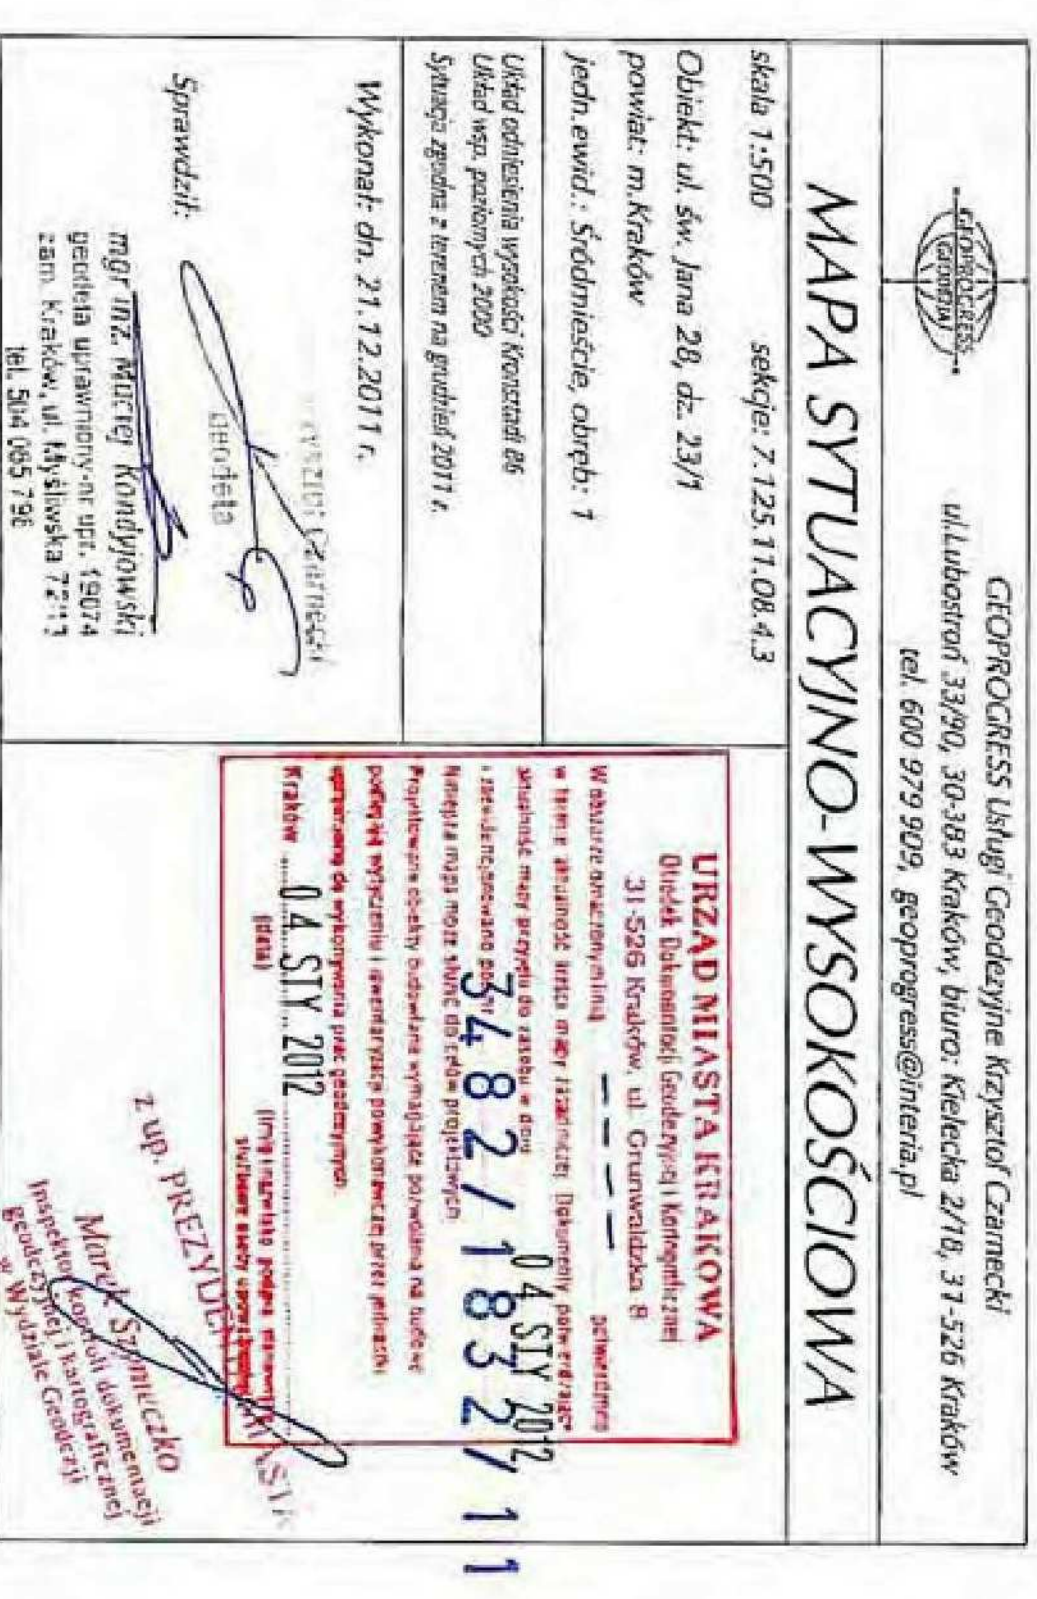 GEOPROGRESS
(GEODEZJA)
GEOPROGRESS Usługi Geodezyjne Krzysztof Czarnecki
ul.Lubostroń 33/90, 30-383 Kraków, biuro: Kielecka 2/18, 31-526 Kraków
tel. 600 979 909, geoprogress@interia.pl
MAPA SYTUACYJNO-WYSOKOŚCIOWA
skala 1:500 sekcje: 7.125.11.08.4.3
Obiekt: ul. św. Jana 28, dz. 23/1
powiat: m.Kraków
jedn.ewid.: Śródmieście, obręb: 1
Układ odniesienia wysokości Kronsztadt 86
Układ wsp. poziomych 2000
Sytuacja zgodna z terenem na grudzień 2011 r.
Wykonał: dn. 21.12.2011 r.
Czarnecki
geodeta
Sprawdził:
mgr inż. Maciej Kondyjowski
geodeta uprawniony-nr upr. 19074
zam. Kraków, ul. Myśliwska 72/13
tel. 504 065 796
URZĄD MIASTA KRAKOWA
Ośrodek Dokumentacji Geodezyjnej i Kartograficznej
31-526 Kraków, ul. Grunwaldzka 8
W obszarze oznaczonym linią – – – – potwierdza się
w terenie aktualność treści mapy zasadniczej. Dokumenty potwierdzające
aktualność mapy przyjęto do zasobu w dniu 04 STY 2012
i zaewidencjonowano pod nr 3482/18327/11
Niniejsza mapa może służyć do celów projektowych
Projektowane obiekty budowlane wymagające pozwolenia na budowę
podlegają wytyczeniu i inwentaryzacji powykonawczej przez jednostki
uprawnione do wykonywania prac geodezyjnych.
Kraków 04 STY 2012
(data) (imię i nazwisko, podpis
z up. PREZYDENTA MIASTA
Marek Szymeczko
Inspektor kontroli dokumentacji
geodezyjnej i kartograficznej
w Wydziale Geodezji